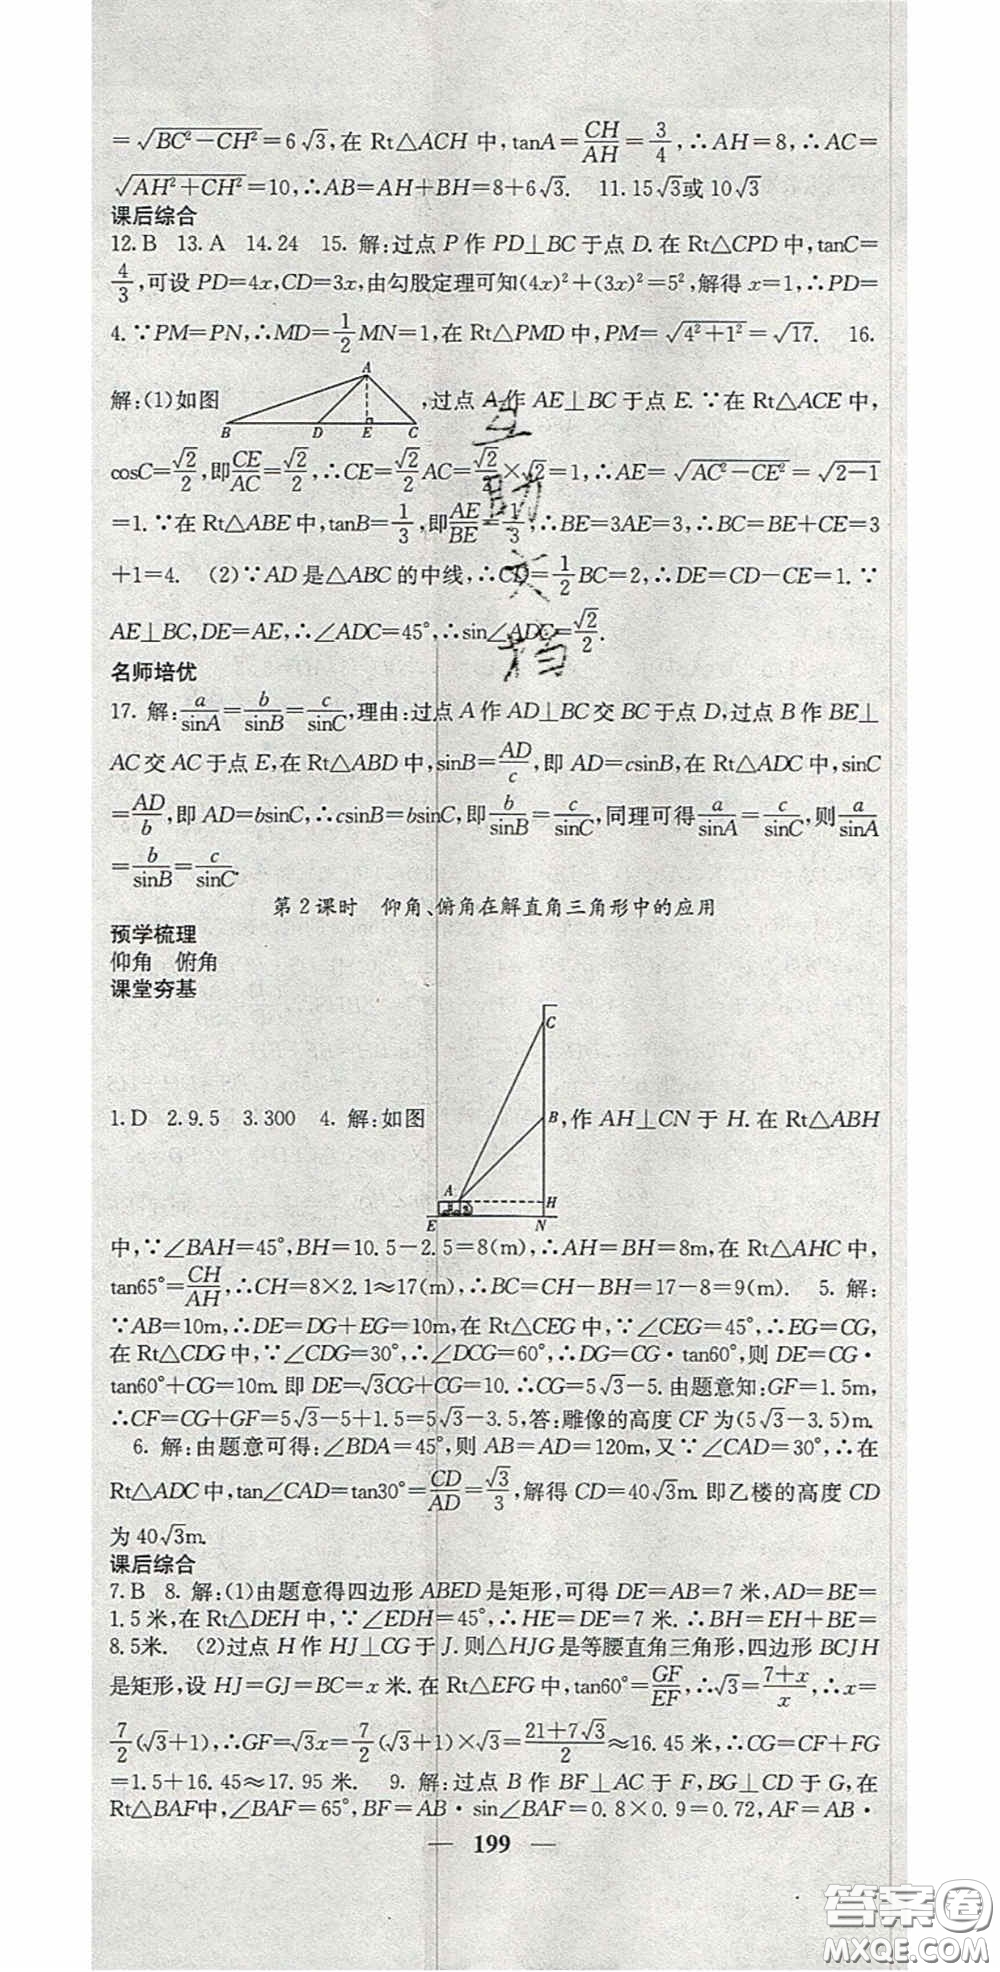 =√(BC²-CH²)=6√3,在 Rt△ACH 中,tanA=CH/AH=3/4,∴AH=8,∴AC=
√(AH²+CH²)=10,∴AB=AH+BH=8+6√3. 11.15√3或10√3
课后综合
12.B 13.A 14.24 15. 解:过点 P 作 PD⊥BC 于点 D.在 Rt△CPD 中,tanC=
4/3,可设 PD=4x,CD=3x,由勾股定理可知(4x)²+(3x)²=5²,解得 x=1,∴PD=
4.∵PM=PN,∴MD=1/2MN=1,在 Rt△PMD 中,PM=√(4²+1²)=√17. 16.
解:(1)如图 A B D E C ,过点 A 作 AE⊥BC 于点 E.∵在 Rt△ACE 中,
cosC=√2/2,即CE/AC=√2/2,∴CE=√2/2AC=√2/2×√2=1,∴AE=√(AC²-CE²)=√(2-1)
=1.∵在 Rt△ABE 中,tanB=1/3,即AE/BE=1/3,∴BE=3AE=3,∴BC=BE+CE=3
+1=4. (2)∵AD 是△ABC 的中线,∴CD=1/2BC=2,∴DE=CD-CE=1.∵
AE⊥BC,DE=AE,∴∠ADC=45°,∴sin∠ADC=√2/2.
名师培优
17. 解:a/sinA=b/sinB=c/sinC,理由:过点 A 作 AD⊥BC 交 BC 于点 D,过点 B 作 BE⊥
AC 交 AC 于点 E,在 Rt△ABD 中,sinB=AD/c,即 AD=csinB,在 Rt△ADC 中,sinC
=AD/b,即 AD=bsinC,∴csinB=bsinC,即b/sinB=c/sinC,同理可得a/sinA=c/sinC,则a/sinA
=b/sinB=c/sinC.
第 2 课时 仰角、俯角在解直角三角形中的应用
预学梳理
仰角 俯角
课堂夯基
1.D 2.9.5 3.300 4. 解:如图 C B A H E N ,作 AH⊥CN 于 H.在 Rt△ABH
中,∵∠BAH=45°,BH=10.5-2.5=8(m),∴AH=BH=8m,在 Rt△AHC 中,
tan65°=CH/AH,∴CH=8×2.1≈17(m),∴BC=CH-BH=17-8=9(m). 5. 解:
∵AB=10m,∴DE=DG+EG=10m,在 Rt△CEG 中,∵∠CEG=45°,∴EG=CG,
在 Rt△CDG 中,∵∠CDG=30°,∴∠DCG=60°,∴DG=CG·tan60°,则 DE=CG·
tan60°+CG=10m.即 DE=√3CG+CG=10.∴CG=5√3-5.由题意知:GF=1.5m,
∴CF=CG+GF=5√3-5+1.5=5√3-3.5,答:雕像的高度 CF 为(5√3-3.5)m.
6. 解:由题意可得:∠BDA=45°,则 AB=AD=120m,又∵∠CAD=30°,∴在
Rt△ADC 中,tan∠CAD=tan30°=CD/AD=√3/3,解得 CD=40√3m.即乙楼的高度 CD
为 40√3m.
课后综合
7.B 8. 解:(1)由题意得四边形 ABED 是矩形,可得 DE=AB=7 米,AD=BE=
1.5 米,在 Rt△DEH 中,∵∠EDH=45°,∴HE=DE=7 米.∴BH=EH+BE=
8.5米. (2)过点 H 作 HJ⊥CG 于 J.则△HJG 是等腰直角三角形,四边形 BCJH
是矩形,设 HJ=GJ=BC=x 米.在 Rt△EFG 中,tan60°=GF/EF,∴√3=(7+x)/x,∴x=
7/2(√3+1),∴GF=√3x=7/2(√3+1)×√3=(21+7√3)/2≈16.45 米,∴CG=CF+FG
=1.5+16.45≈17.95 米. 9. 解:过点 B 作 BF⊥AC 于 F,BG⊥CD 于 G,在
Rt△BAF中,∠BAF=65°,BF=AB·sin∠BAF=0.8×0.9=0.72,AF=AB·
— 199 —
互助文档
答案圈
MXQE.COM